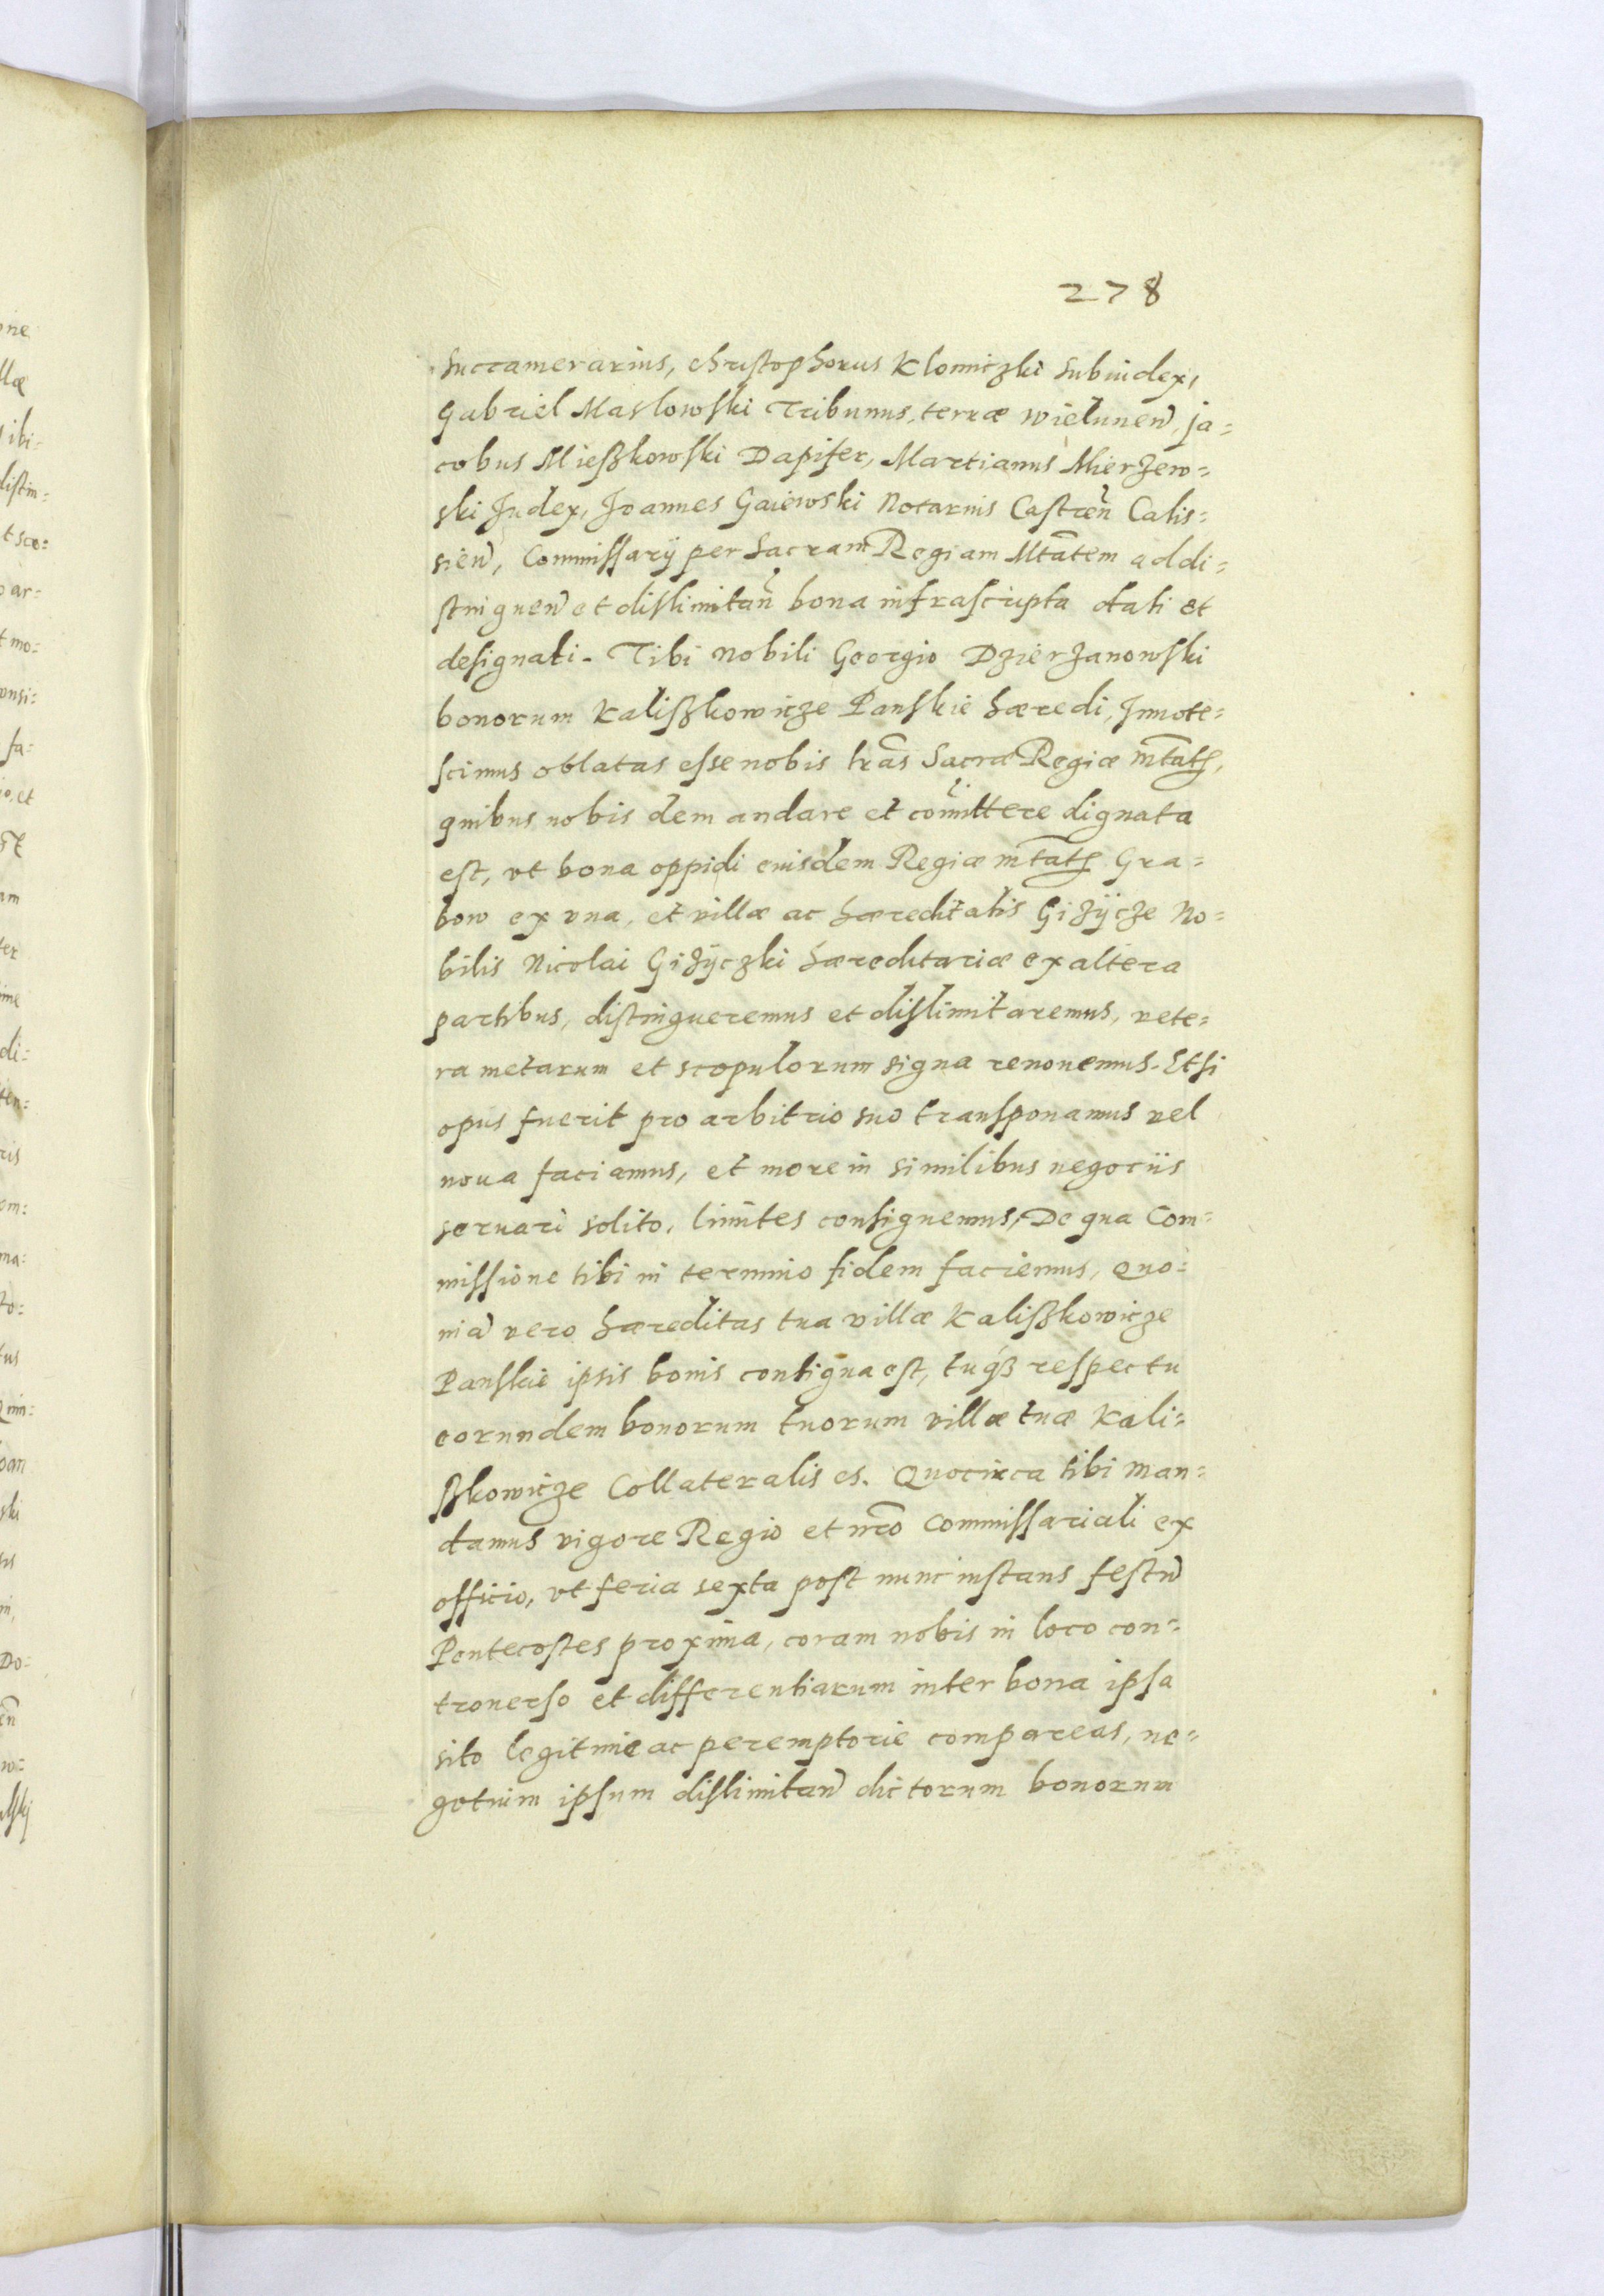 278
Succamerarius, Christophorus Klomiczki Subiudex,
Gabriel Maslowski Tribunus, terræ wielunen, ja=
cobus Mießkowski Dapifer, Martianus Mierzew=
ski Judex, Joannes Gaiewski Notarius Castren Calis=
sien, Commissarij per Sacram Regiam Mtatem ad di=
stinguen et dislimitan bona infrascripta dati et
designati. Tibi nobili Georgio Dzierzanowski
bonorum Kalißkowicze Panskie hæredi, Innote=
scimus oblatas esse nobis lras Sacræ Regiæ mtatis,
quibus nobis demandare et comittere dignata
est, vt bona oppidi eiusdem Regiæ mtatis Gra=
bow ex vna, et villæ ac hæreditatis Giżÿcze No=
bilis Nicolai Giżÿczki hæreditariæ ex altera
partibus, distingueremus et dislimitaremus, vete=
ra metarum et scopulorum signa renouemus. Et si
opus fuerit pro arbitrio suo transponamus vel
noua faciamus, et more in similibus negociis
seruari solito, limites consignemus, De qua Com=
missione tibi in termino fidem faciemus, Quo=
nia vero hæreditas tua villæ Kalißkowicze
Panskie ipsis bonis contigua est, tuq3 respectu
eorundem bonorum tuorum villæ tuæ Kali=
ßkowicze Collateralis es. Quocirca tibi man=
damus vigore Regio et nro Commissariali ex
officio, vt feria sexta post nunc instans festu
Pentecostes proxima, coram nobis in loco con=
trouerso et differentiarum inter bona ipsa
sito legitime ac peremptorie compareas, ne=
gotium ipsum dislimitan dictorum bonorum